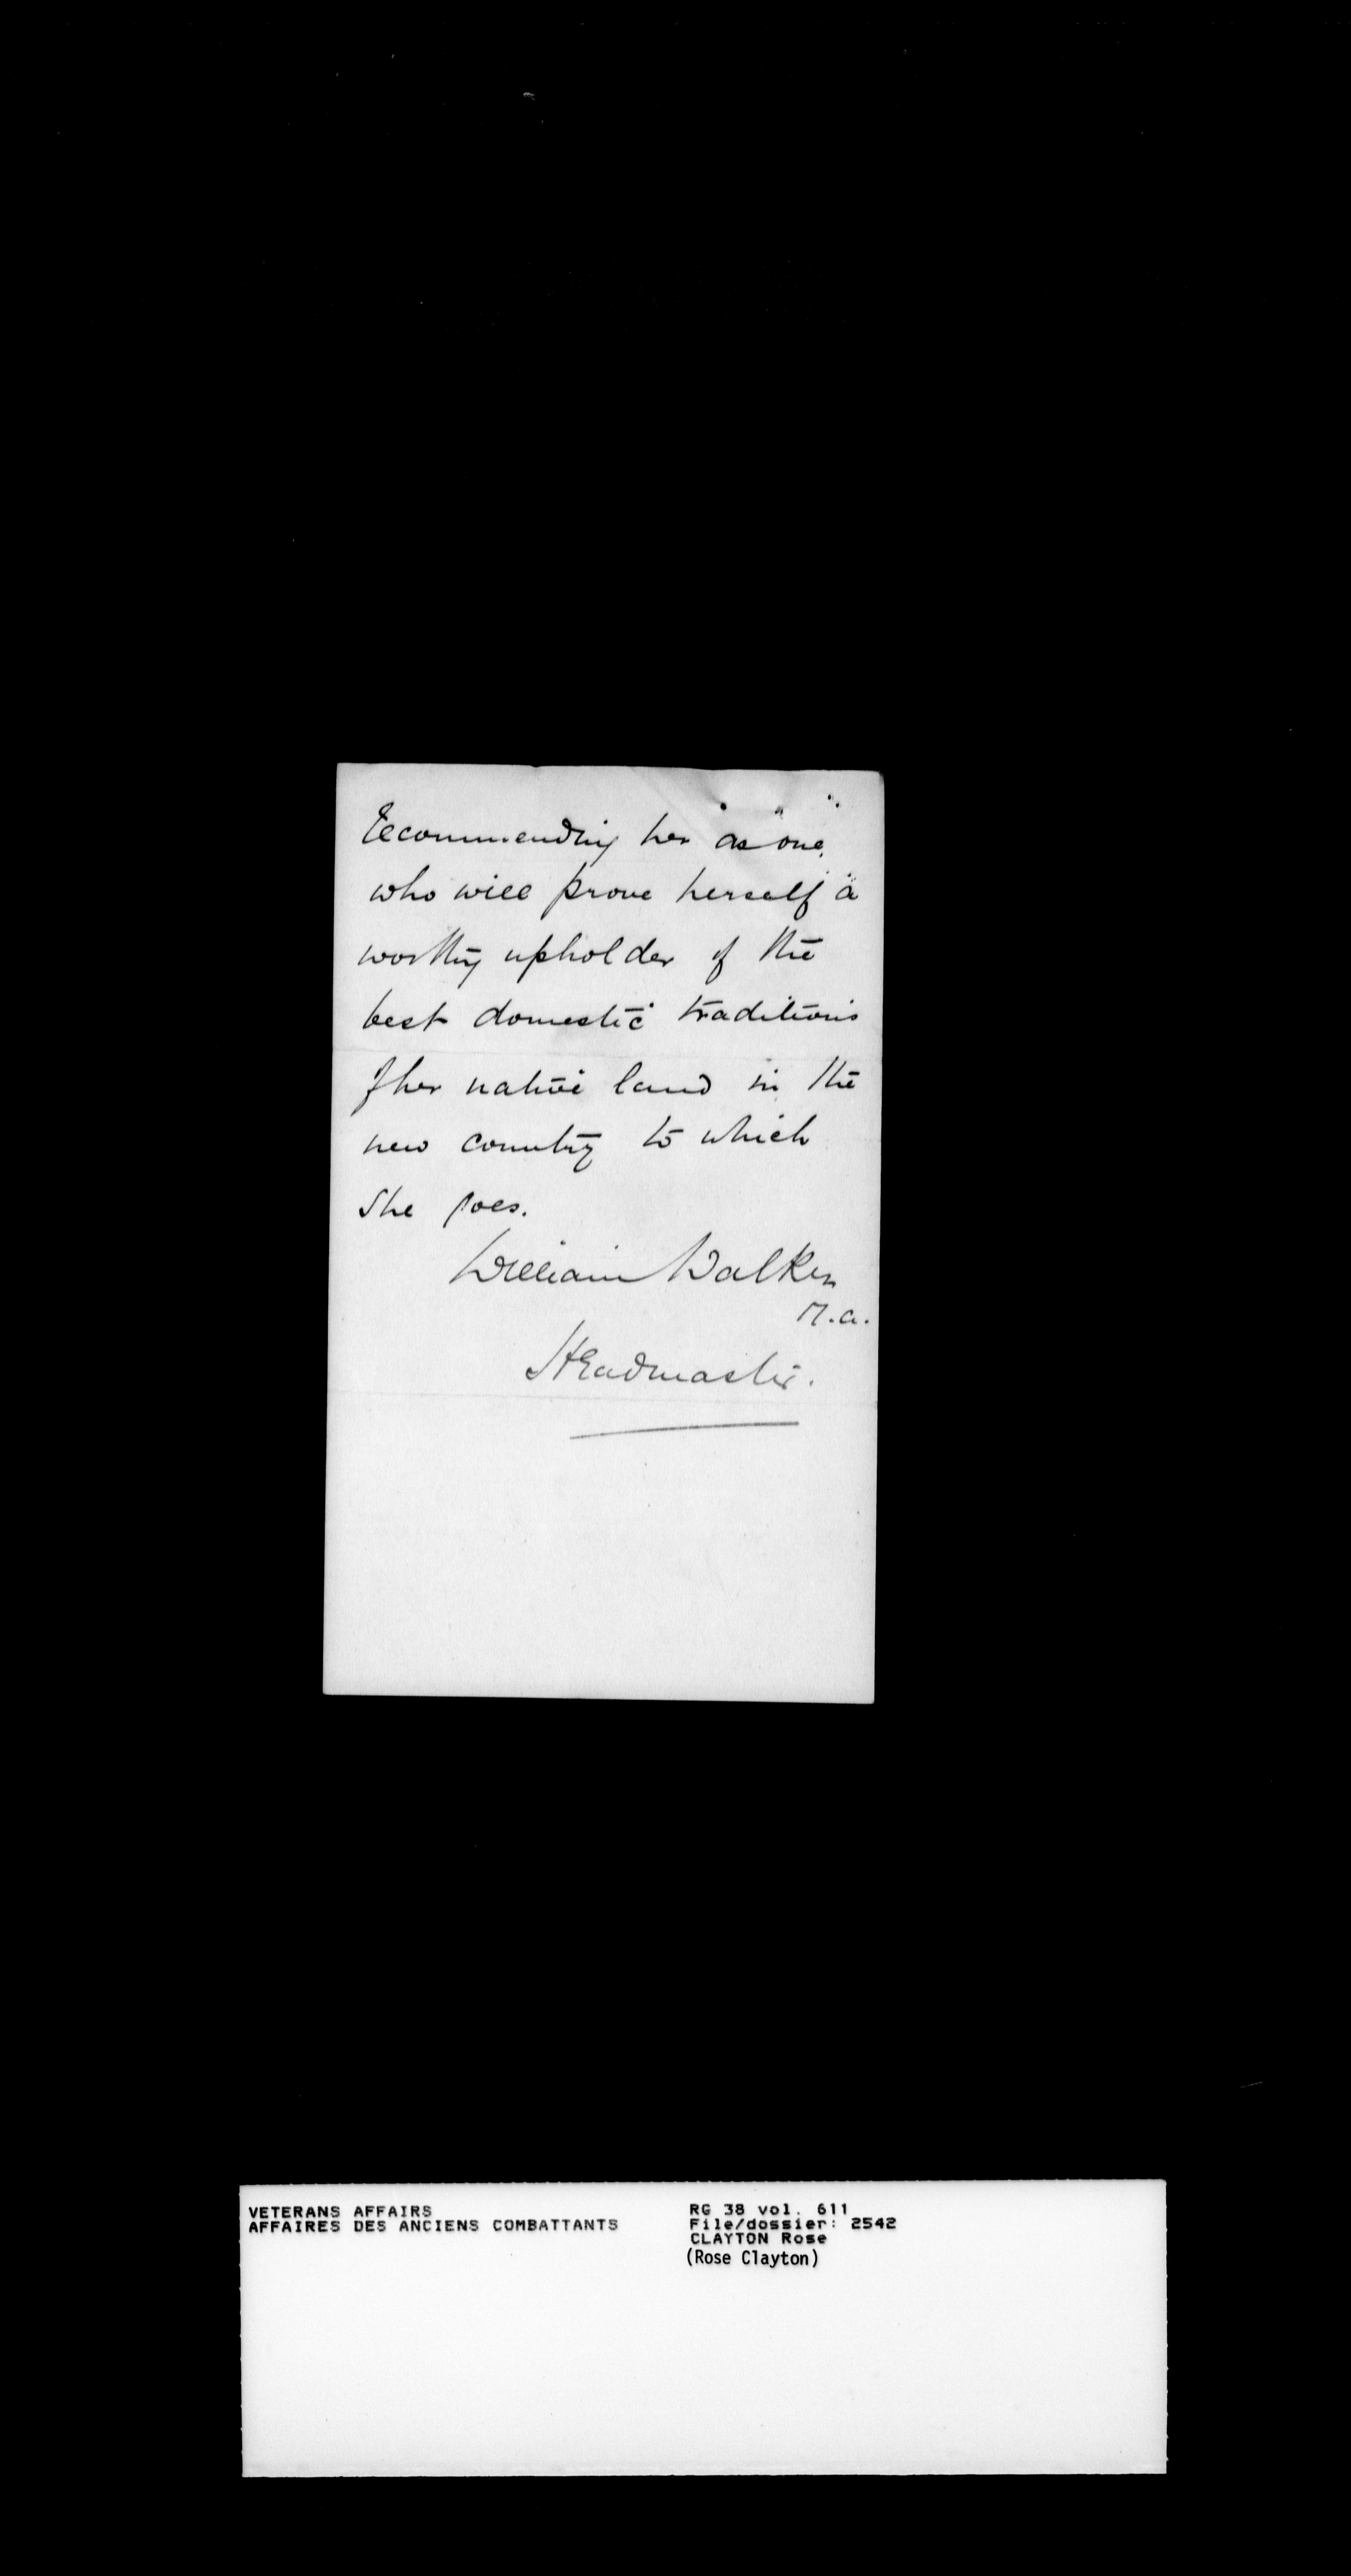 recommending her as one
who will prove herself a
worthy upholder of the
best domestic traditions
of her native land in the
new country to which
she goes.
William Walker
M.A.
Headmaster.
VETERANS AFFAIRS
AFFAIRES DES ANCIENS COMBATTANTS
RG 38 vol. 611
File/dossier: 2542
CLAYTON Rose
(Rose Clayton)